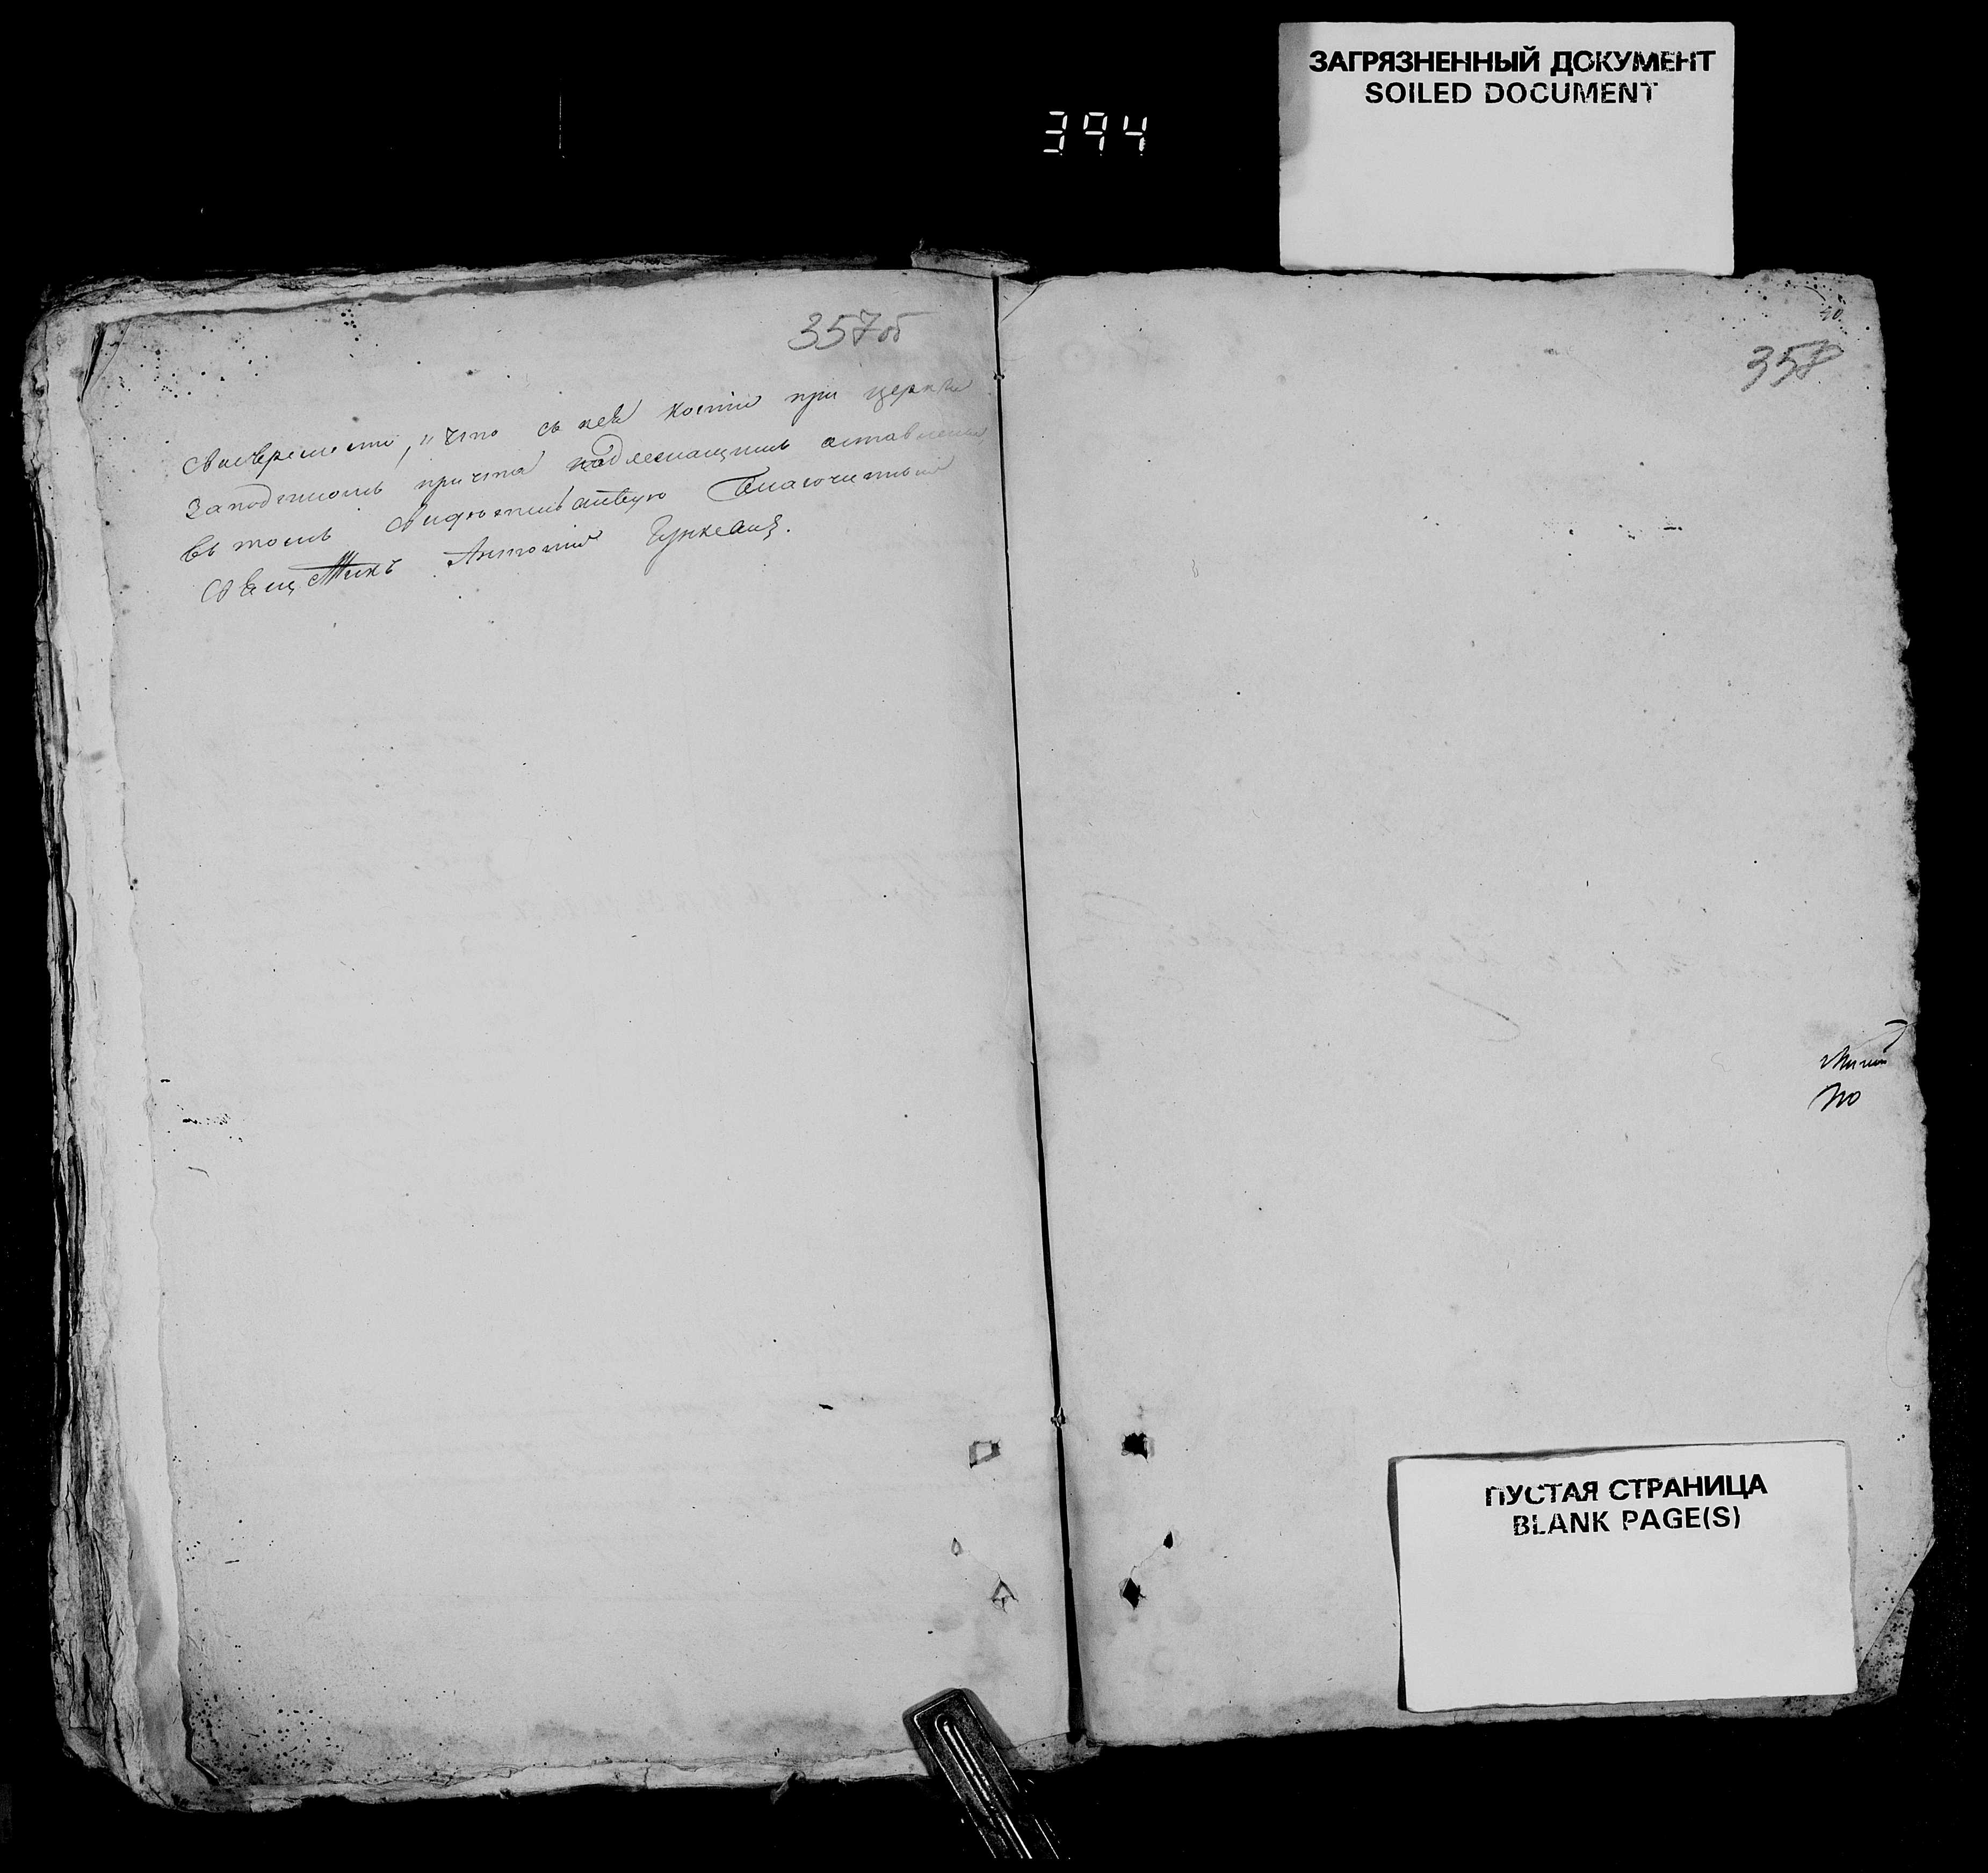 ЗАГРЯЗНЕННЫЙ ДОКУМЕНТ
SOILED DOCUMENT
394
357об
своевременно, и что съ нея копiя при церкви
За подписомъ причта надлежащимъ оставлена
въ томъ свидѣтельствую Благочинный
Свещеникъ Антонiй
358
но
ПУСТАЯ СТРАНИЦА
BLANK PAGE(S)